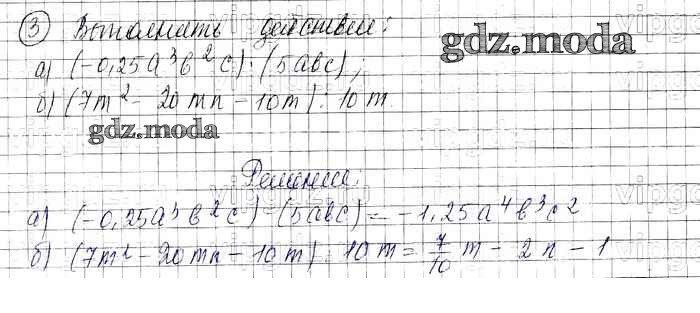 ③ Выполнить действия:
gdz.moda
а) (-0,25a³b²c) · (5abc);
б) (7m² - 20mn - 10m) : 10m
gdz.moda
Решение:
а) (-0,25a³b²c) · (5abc) = -1,25a⁴b³c²
б) (7m² - 20mn - 10m) : 10m = 7/10 m - 2n - 1